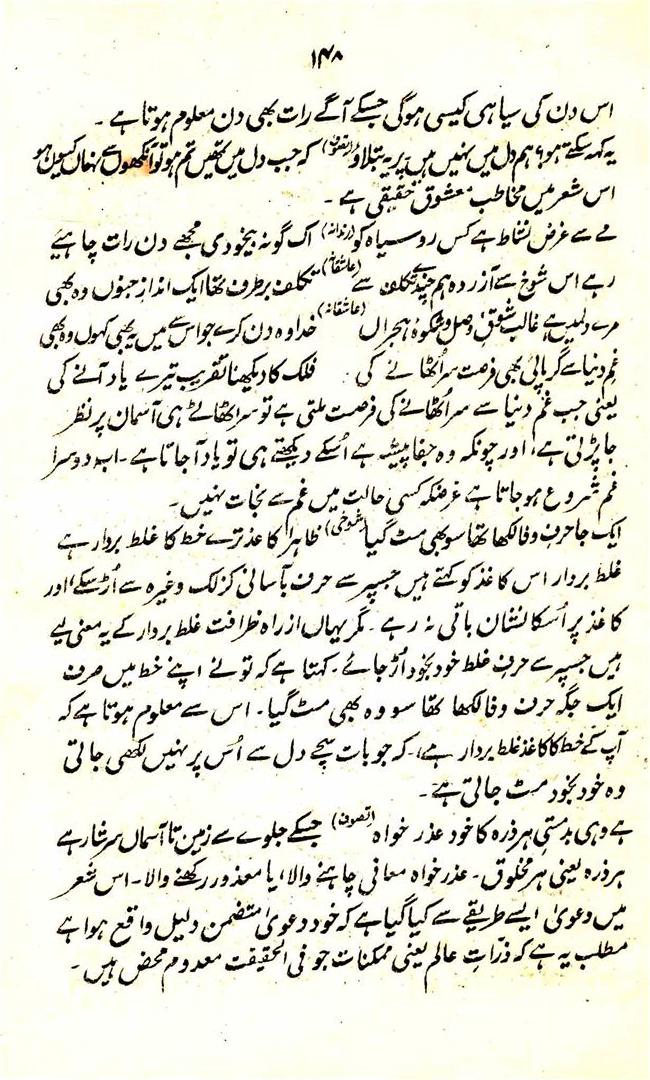 ۱۴۸
اس دن کی سیاہی کیسی ہوگی جسکے آگے رات بھی دن معلوم ہوتا ہے ۔
یہ کہہ سکتے ہو؟ ہم دل میں نہیں ہیں پر یہ بتلاؤ (تصوف) کہ جب دل میں تمھیں تم ہو تو آنکھوں سے نہاں کیوں ہو
اس شعر میں مخاطب معشوق حقیقی ہے ۔
مے سے غرض نشاط ہے کس روسیاہ کو (رندانہ) اک گونہ بیخودی مجھے دن رات چاہیے
رہے اس شوخ سے آزردہ ہم چندے تکلف سے (عاشقانہ) تکلف برطرف تھا ایک انداز جنوں وہ بھی
مرے دلمیں ہے غالب شوقِ وصل و شکوۂ ہجراں (عاشقانہ) خدا وہ دن کرے جو اس سے میں یہ بھی کہوں وہ بھی
غمِ دنیا سے گر پائی بھی فرصت سر اُٹھانے کی فلک کا دیکھنا تقریب تیرے یاد آنے کی
یعنی جب غم دنیا سے سر اُٹھانے کی فرصت ملتی ہے تو سر اُٹھاتے ہی آسمان پر نظر
جا پڑتی ہے، اور چونکہ وہ جفا پیشہ ہے اُسکے دیکھتے ہی تو یاد آجاتا ہے ۔ اب دوسرا
غم شروع ہو جاتا ہے غرضکہ کسی حالت میں غم سے نجات نہیں ۔
ایک جا حرفِ وفا لکھا تھا سو بھی مٹ گیا (شوخی) ظاہرا کاغذ ترے خط کا غلط بردار ہے
غلط بردار اس کاغذ کو کہتے ہیں جسپر سے حرف بآسانی کزلک وغیرہ سے اُڑ سکے، اور
کاغذ پر اُسکا نشان باقی نہ رہے ۔ مگر یہاں از راہ ظرافت غلط بردار کے یہ معنی لیے
ہیں جسپر سے حرفِ غلط خود بخود اُڑ جائے ۔ کہتا ہے کہ تو نے اپنے خط میں صرف
ایک جگہ حرف وفا لکھا تھا سو وہ بھی مٹ گیا ۔ اس سے معلوم ہوتا ہے کہ
آپ کے خط کا کاغذ غلط بردار ہے، کہ جو بات سچے دل سے اُس پر نہیں لکھی جاتی
وہ خود بخود مٹ جاتی ہے ۔
ہے وہی بدمستیِ ہر ذرہ کا خود عذر خواہ (تصوف) جسکے جلوے سے زمین تا آسماں سرشار ہے
ہر ذرہ یعنی ہر مخلوق ۔ عذر خواہ معافی چاہنے والا، یا معذور رکھنے والا ۔ اس شعر
میں دعویٰ ایسے طریقے سے کیا گیا ہے کہ خود دعویٰ متضمن دلیل واقع ہوا ہے
مطلب یہ ہے کہ ذرّات عالم یعنی ممکنات جو فی الحقیقت معدوم محض ہیں ۔